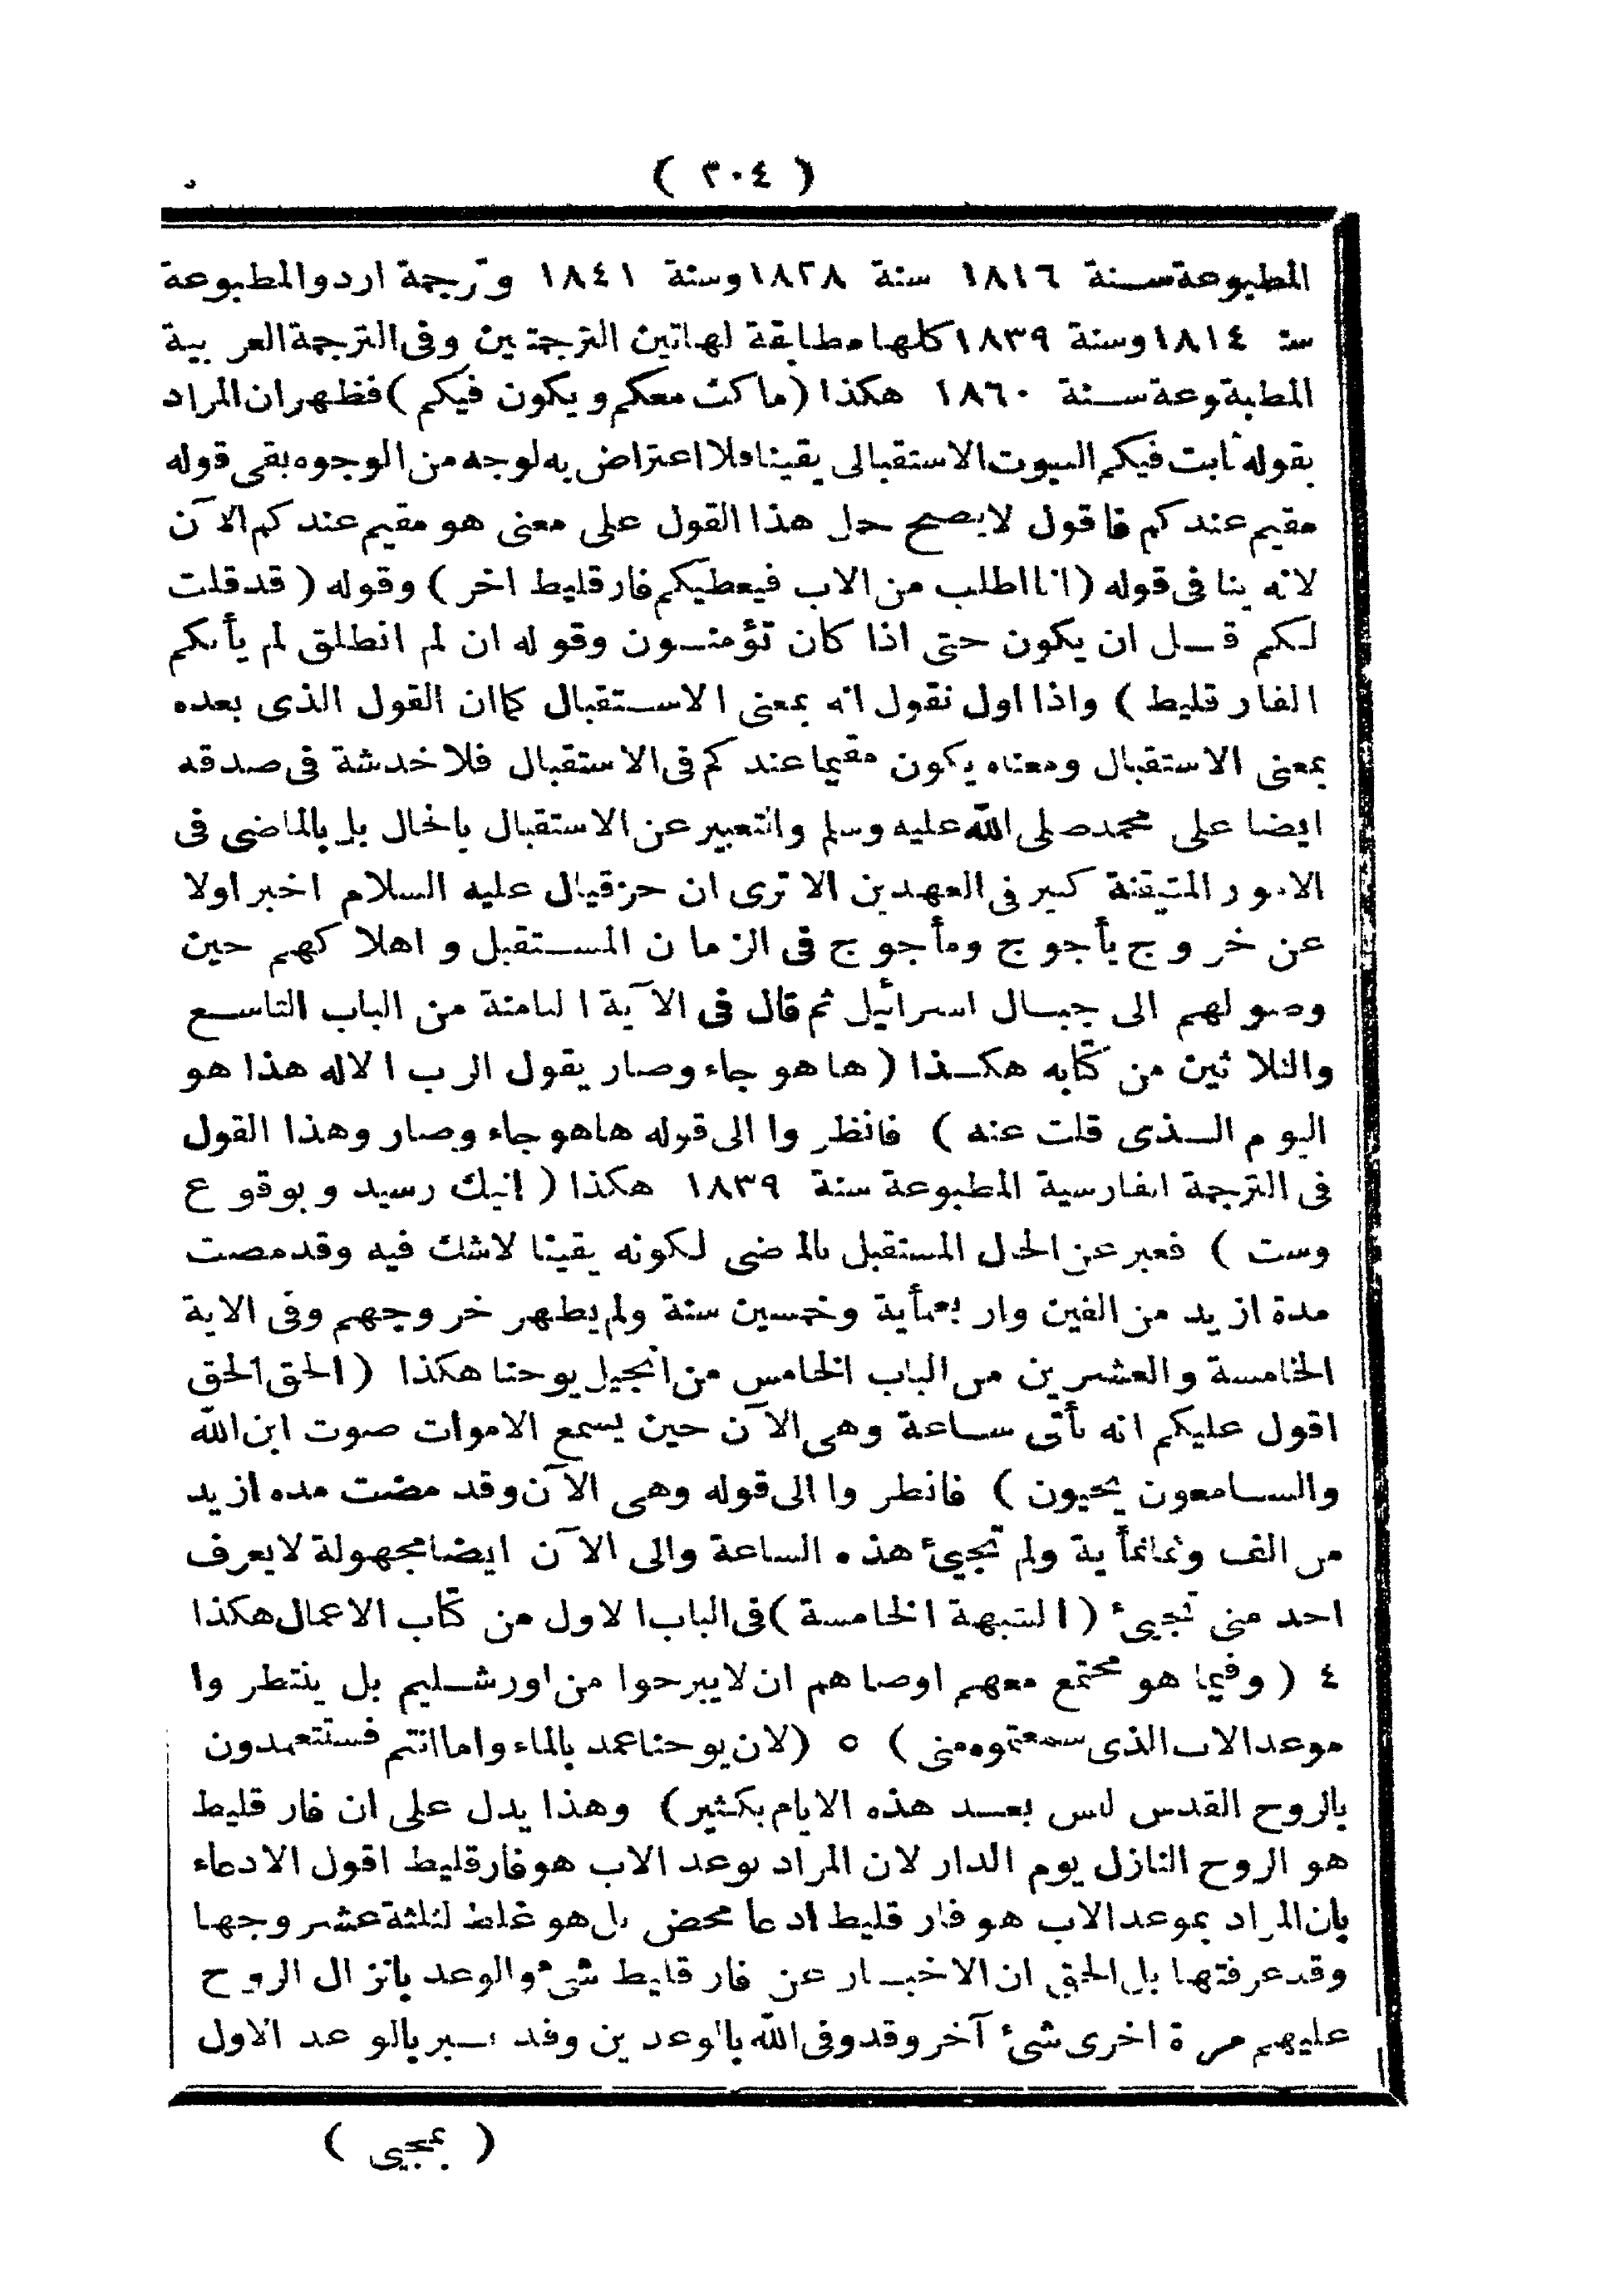 ( ٣٠٤ )
المطبوعة سنة ١٨١٦ سنة ١٨٢٨ وسنة ١٨٤١ وترجمة اردو المطبوعة
سنة ١٨١٤ وسنة ١٨٣٩ كلها مطابقة لهاتين الترجمتين وفى الترجمة العربية
المطبوعة سنة ١٨٦٠ هكذا (ماكث معكم ويكون فيكم) فظهر ان المراد
بقوله ثابت فيكم الثبوت الاستقبالى يقينا فلا اعتراض به لوجه من الوجوه بقى قوله
مقيم عندكم فاقول لا يصح حمل هذا القول على معنى هو مقيم عندكم الآن
لانه ينافى قوله (انا اطلب من الاب فيعطيكم فارقليط اخر) وقوله (قد قلت
لكم قبل ان يكون حتى اذا كان تؤمنون وقوله ان لم انطلق لم يأتكم
الفارقليط) واذا اول نقول انه بمعنى الاستقبال كما ان القول الذى بعده
بمعنى الاستقبال ومعناه يكون مقيما عندكم فى الاستقبال فلا خدشة فى صدقه
ايضا على محمد صلى الله عليه وسلم والتعبير عن الاستقبال بالحال بل بالماضى فى
الامور المتيقنة كثير فى العهدين الا ترى ان حزقيال عليه السلام اخبر اولا
عن خروج يأجوج ومأجوج فى الزمان المستقبل واهلاكهم حين
وصولهم الى جبال اسرائيل ثم قال فى الآية الثامنة من الباب التاسع
والثلاثين من كتابه هكذا (ها هو جاء وصار يقول الرب الاله هذا هو
اليوم الذى قلت عنه) فانظروا الى قوله ها هو جاء وصار وهذا القول
فى الترجمة الفارسية المطبوعة سنة ١٨٣٩ هكذا (اينك رسيد وبوقوع
وست) فعبر عن الحال المستقبل بالماضى لكونه يقينا لاشك فيه وقد مضت
مدة ازيد من الفين واربعمأية وخمسين سنة ولم يظهر خروجهم وفى الاية
الخامسة والعشرين من الباب الخامس من انجيل يوحنا هكذا (الحق الحق
اقول عليكم انه تأتى ساعة وهى الآن حين يسمع الاموات صوت ابن الله
والسامعون يحيون) فانظروا الى قوله وهى الآن وقد مضت مده ازيد
من الف وثمانمأية ولم تجيئ هذه الساعة والى الآن ايضا مجهولة لا يعرف
احد متى تجيئ (الشبهة الخامسة) فى الباب الاول من كتاب الاعمال هكذا
٤ (وفيما هو مجتمع معهم اوصاهم ان لا يبرحوا من اورشليم بل ينتظروا
موعد الاب الذى سمعتموه منى) ٥ (لان يوحنا عمد بالماء واما انتم فستتعمدون
بالروح القدس ليس بعد هذه الايام بكثير) وهذا يدل على ان فارقليط
هو الروح النازل يوم الدار لان المراد بوعد الاب هو فارقليط اقول الادعاء
بان المراد بموعد الاب هو فارقليط ادعا محض بل هو غلط لثلثة عشر وجها
وقد عرفتها بل الحق ان الاخبار عن فارقليط شئ والوعد بانزال الروح
عليهم مرة اخرى شئ آخر وقد وفى الله بالوعدين وقد بالوعد الاول
( بمجيى )